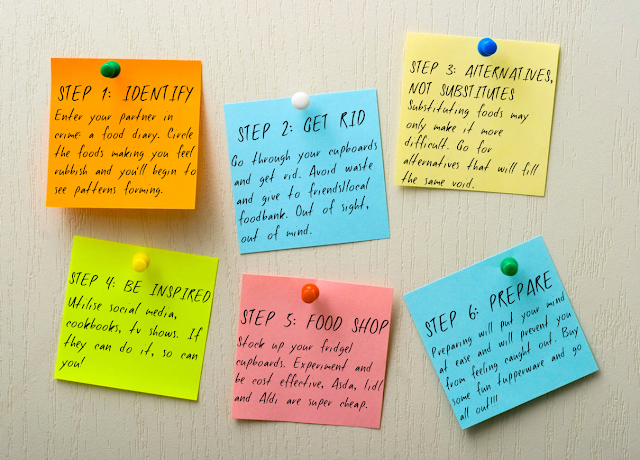 STEP 1: IDENTIFY
Enter your partner in
crime: a food diary. Circle
the foods making you feel
rubbish and you'll begin to
see patterns forming.
STEP 2: GET RID
Go through your cupboards
and get rid. Avoid waste
and give to friends/local
foodbank. Out of sight,
out of mind.
STEP 3: ALTERNATIVES,
NOT SUBSTITUTES
Substituting foods may
only make it more
difficult. Go for
alternatives that will fill
the same void.
STEP 4: BE INSPIRED
Utilise social media,
cookbooks, tv shows. If
they can do it, so can
you!
STEP 5: FOOD SHOP
Stock up your fridge/
cupboards. Experiment and
be cost effective, Asda, lidl
and Aldi are super cheap.
STEP 6: PREPARE
Preparing will put your mind
at ease and will prevent you
from feeling caught out. Buy
some fun tupperware and go
all out!!!